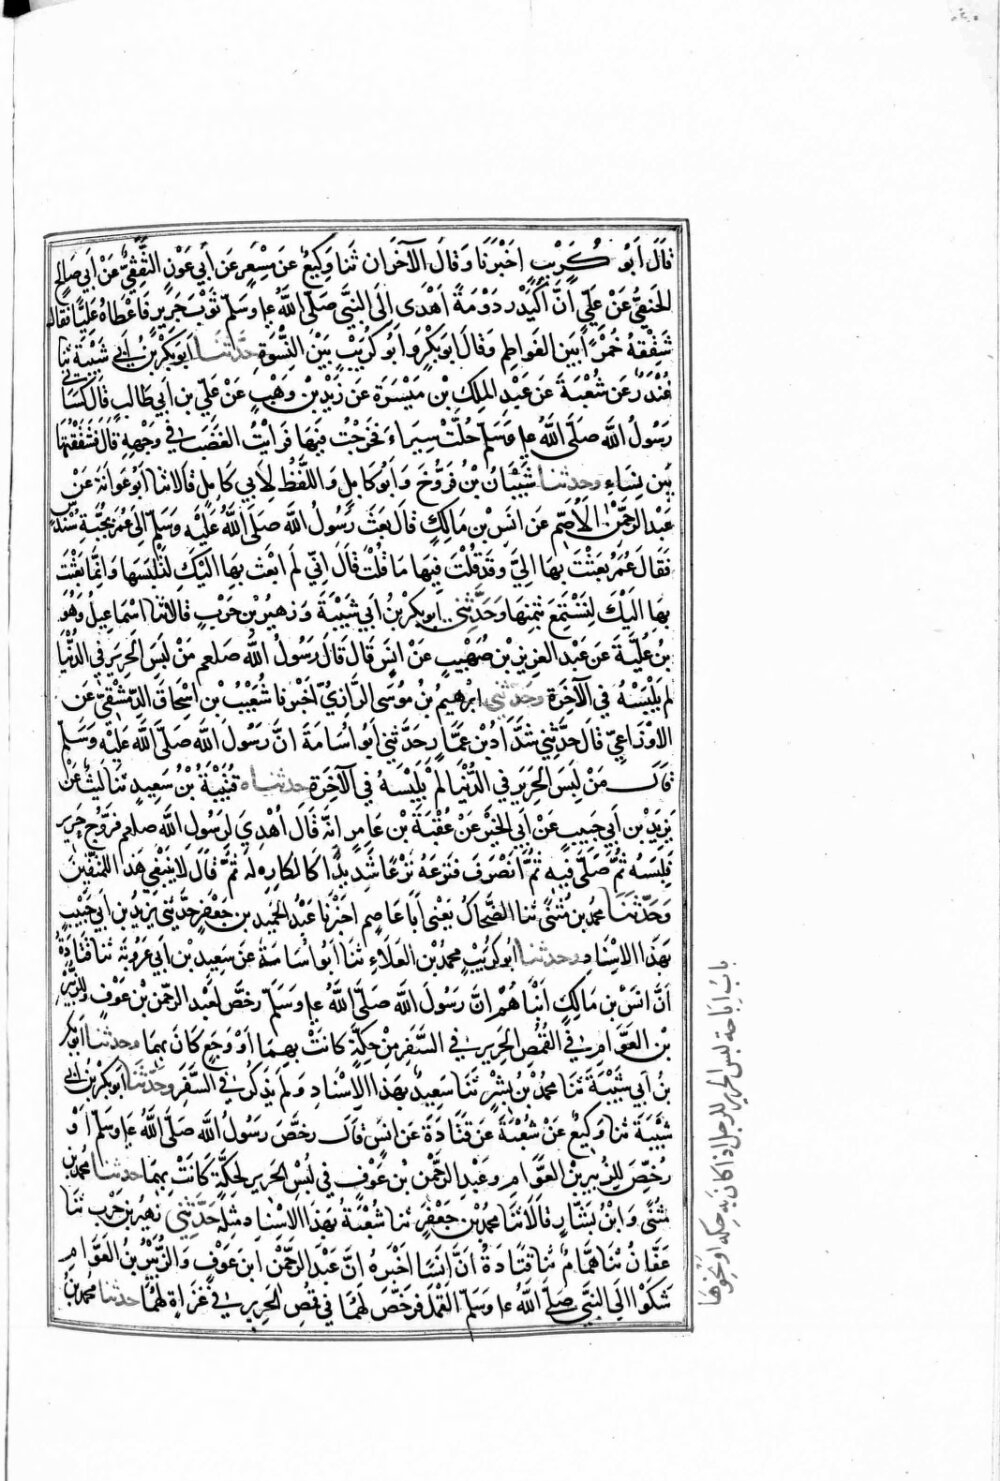 قَالَ أَبُو كُرَيْبٍ اخْبَرَنَا وَقَالَ الآخَرَان ثَنَا وَكِيعٌ عَنْ مِسْعَرٍ عَن أَبي عَوْنٍ الثَّقَفِيِّ عَنْ أَبي صَالِحٍ
الحَنفِيِّ عَنْ عَلِيٍّ أَنَّ أُكَيْدِرَ دَوْمَةَ اَهْدَى الَى النَّبِيّ صَلّى اللَّهُ علٍ وسَلّم ثَوْبَ حَرِيرٍ فَاعْطَاهُ عَليًّا فقال
شَقِّقْهُ خُمُراً بَينَ الفَوَاطِمِ وَقَالَ ابوبَكْرٍ وَ ابُو كُرَيْبٍ بَيْنَ النِّسْوَةِ حَدَّثَنَا أبوبَكْرِ بْنُ أَبي شَيْبَة ثنَا
غُنْدَرٌ عَن شُعْبَةَ عَن عَبْدِ المَلِكِ بْنِ مَيْسَرَةَ عَن زَيْدِ بْن وَهْبٍ عَنْ عَلِيِّ بن أَبي طَالبٍ قَالَ كَسَانِي
رَسُولُ اللَّه صَلّى اللَّهُ علٍ وَسَلّم حُلَّةَ سِيَراءَ فَخَرَجْتُ فِيهَا فَرَايْتُ الغَضَبَ فِي وَجْهِهِ قَالَ فَشَقَقْتُهَا
بَيْن نِسَاءِي وحدثنا شَيْبَانُ بْن فَرُّوخَ وَ أَبُو كَامِلٍ وَ اللَّفْظُ لِأَبي كَامِلٍ قَالَا ثنا أَبُو عَوَانَةَ عَنْ
عَبْد الرَّحْمٰن الأَصَمِّ عَن انَسِ بْن مَالِكٍ قَالَ بَعَثَ رَسُولُ اللَّه صَلّى اللَّهُ عَلَيْهِ وَسَلّم الى عُمَرَ بِجُبَّةِ سُنْدُسٍ
فَقَالَ عُمَرُ بَعَثْتَ بِهَا الِيَّ وَقَدْ قُلْتَ فِيهَا مَا قُلْتَ قَالَ اِنِّي لَمْ ابْعَثْ بِهَا الَيْكَ لِتَلْبَسَهَا وَانِّمَا بَعَثْتُ
بِهَا الَيْكَ لِتَسْتَمْتِعَ بِثَمَنِهَا وَحَدَّثَنِي ابوبكْر بْنُ أَبي شَيْبَةَ وَ زهَيرُ بْن حَرْبٍ قَالَا ثنَا اسْمَاعِيلُ وَهُوَ
بْنُ عُلَيَّةَ عَن عَبْد العَزِيزِ بْن صُهَيْبٍ عَنْ انَسٍ قَالَ قَالَ رَسُولُ اللَّه صلعم مَنْ لَبسَ الحَرِيرَ فِي الدُّنْيَا
لم يَلْبَسْهُ فِي الآخرَةِ وَحَدَّثَنِي ابرٰهِيمُ بْنُ مُوسَى الرَّازِيُّ اخْبَرنا شُعَيْبُ بْن اسْحَاقَ الدِّمَشْقِيُّ عَن
الاَوْزَاعِيِّ قَالَ حَدَّثَنِي شَدَّادُ بْن عَمَّارٍ حَدَّثَنِي أَبُو اُسَامَةَ انَّ رَسُولَ اللَّه صَلّى اللَّه عَلَيْهِ وَسَلّم
قَالَ مَنْ لَبِسَ الحَرِيرَ فِي الدُّنْيَا لَمْ يَلْبَسْهُ فِي الآخِرَةِ حدثناه قُتَيْبَةُ بْنُ سَعِيدٍ ثَنَا لَيْثٌ عَنْ
يَزِيدَ بْن أَبي حَبيبٍ عَنْ أَبي الخَيْرِ عَنْ عُقْبَةَ بْن عَامِرٍ انَّه قَالَ اُهْدِيَ لِرَسُولِ اللَّه صلعم فَرُّوجُ حَرِير
فَلَبِسَهُ ثُمَّ صَلَّى فِيهِ ثُمَّ انْصَرَفَ فنَزعَهُ نَزْعًا شَدِيدًا كَالكَارِهِ لَه ثُمَّ قَالَ لَا يَنْبَغِي هَذَا لِلْمُتَّقِينَ
وَحَدَّثَنَا محمد بن مُثَنَّى ثَنا الضَّحَّاكُ يَعْنى أَبَا عَاصِم اخْبَرنَا عَبْدُ الحَمِيدِ بن جَعْفَرٍ حَدَّثني يَزِيدُ بن أَبي حَبِيْبٍ
بِهَذَا الاِسْنَادِ وحدثنا ابُو كُرَيْبٍ محمدُ بْن العَلَاءِ ثَنَا أَبُو اُسَامَةَ عَن سَعِيدِ بْن أَبي عَرُوبَةَ ثنا قَتَادَةُ
أَنَّ انَسَ بْن مَالِكٍ أَنْبَأَهُمْ انَّ رَسُولَ اللَّه صَلّى اللَّهُ علٍ وَسَلّم رَخَّصَ لِعَبْدِ الرّحمٰن بْن عَوْفٍ وَللزُّبَيْرِ
بْن العَوَّامِ فِي القُمُصِ الحَرِيرِ فِي السَّفَرِ مِنْ حِكَّةٍ كَانَتْ بِهِمَا اوْ وَجَعٍ كَانَ بِهِمَا وحدثنا ابوبكر
بْنُ أَبي شَيْبَةَ ثَنَا محمدُ بْن بِشْرٍ ثَنَا سَعِيدٌ بهَذا الاِسْنَادِ وَلَم يَذكُر فِي السَّفَرِ وَحَدَّثَنَا أبوبَكْرِ بْن أَبي
شَيْبَةَ ثنا وَكِيعٌ عَنْ شُعْبَةَ عَن قَتَادَةَ عَن انَسٍ قَالَ رخَّصَ رَسُولُ اللَّه صَلَّى اللَّهُ علٍ وسَلّم اَوْ
رُخِّصَ لِلزُّبَيرِ بْنِ العَوَّامِ وعَبْد الرَّحْمٰن بْن عَوْفٍ فِي لُبْسِ الحَريرِ لحِكَّةٍ كَانَتْ بِهِمَا حدثنا محمد بن
مُثَنَّى وَ ابْنُ بَشَّارٍ قَالَا ثَنَا محمدُ بْن جَعْفَرٍ ثنا شُعْبَةُ بهَذَا الاسْنَاد مِثلَه حَدَّثَنِي زهَير بن حَرْب ثَنَا
عَفَّانُ ثنَا هَمَّامٌ ثنا قَتَادَةُ انَّ انَسًا اخْبَرَهُ انَّ عَبْدَ الرَّحمٰنَ ابنَ عَوْفٍ وَالزُّبَيْرَ بْنَ العَوَّامِ
شَكَوْا الَى النَّبِيّ صَلّى اللَّهُ علٍ وسَلّم القَمْلَ فَرَخَّصَ لَهُمَا فِي قُمُصِ الحَرِيرِ فِي غَزَاةٍ لَهُمَا حدثنا محمد بنُ
باب اباحة لبس الحرير للرجل اذا كان به حكة او نحوها